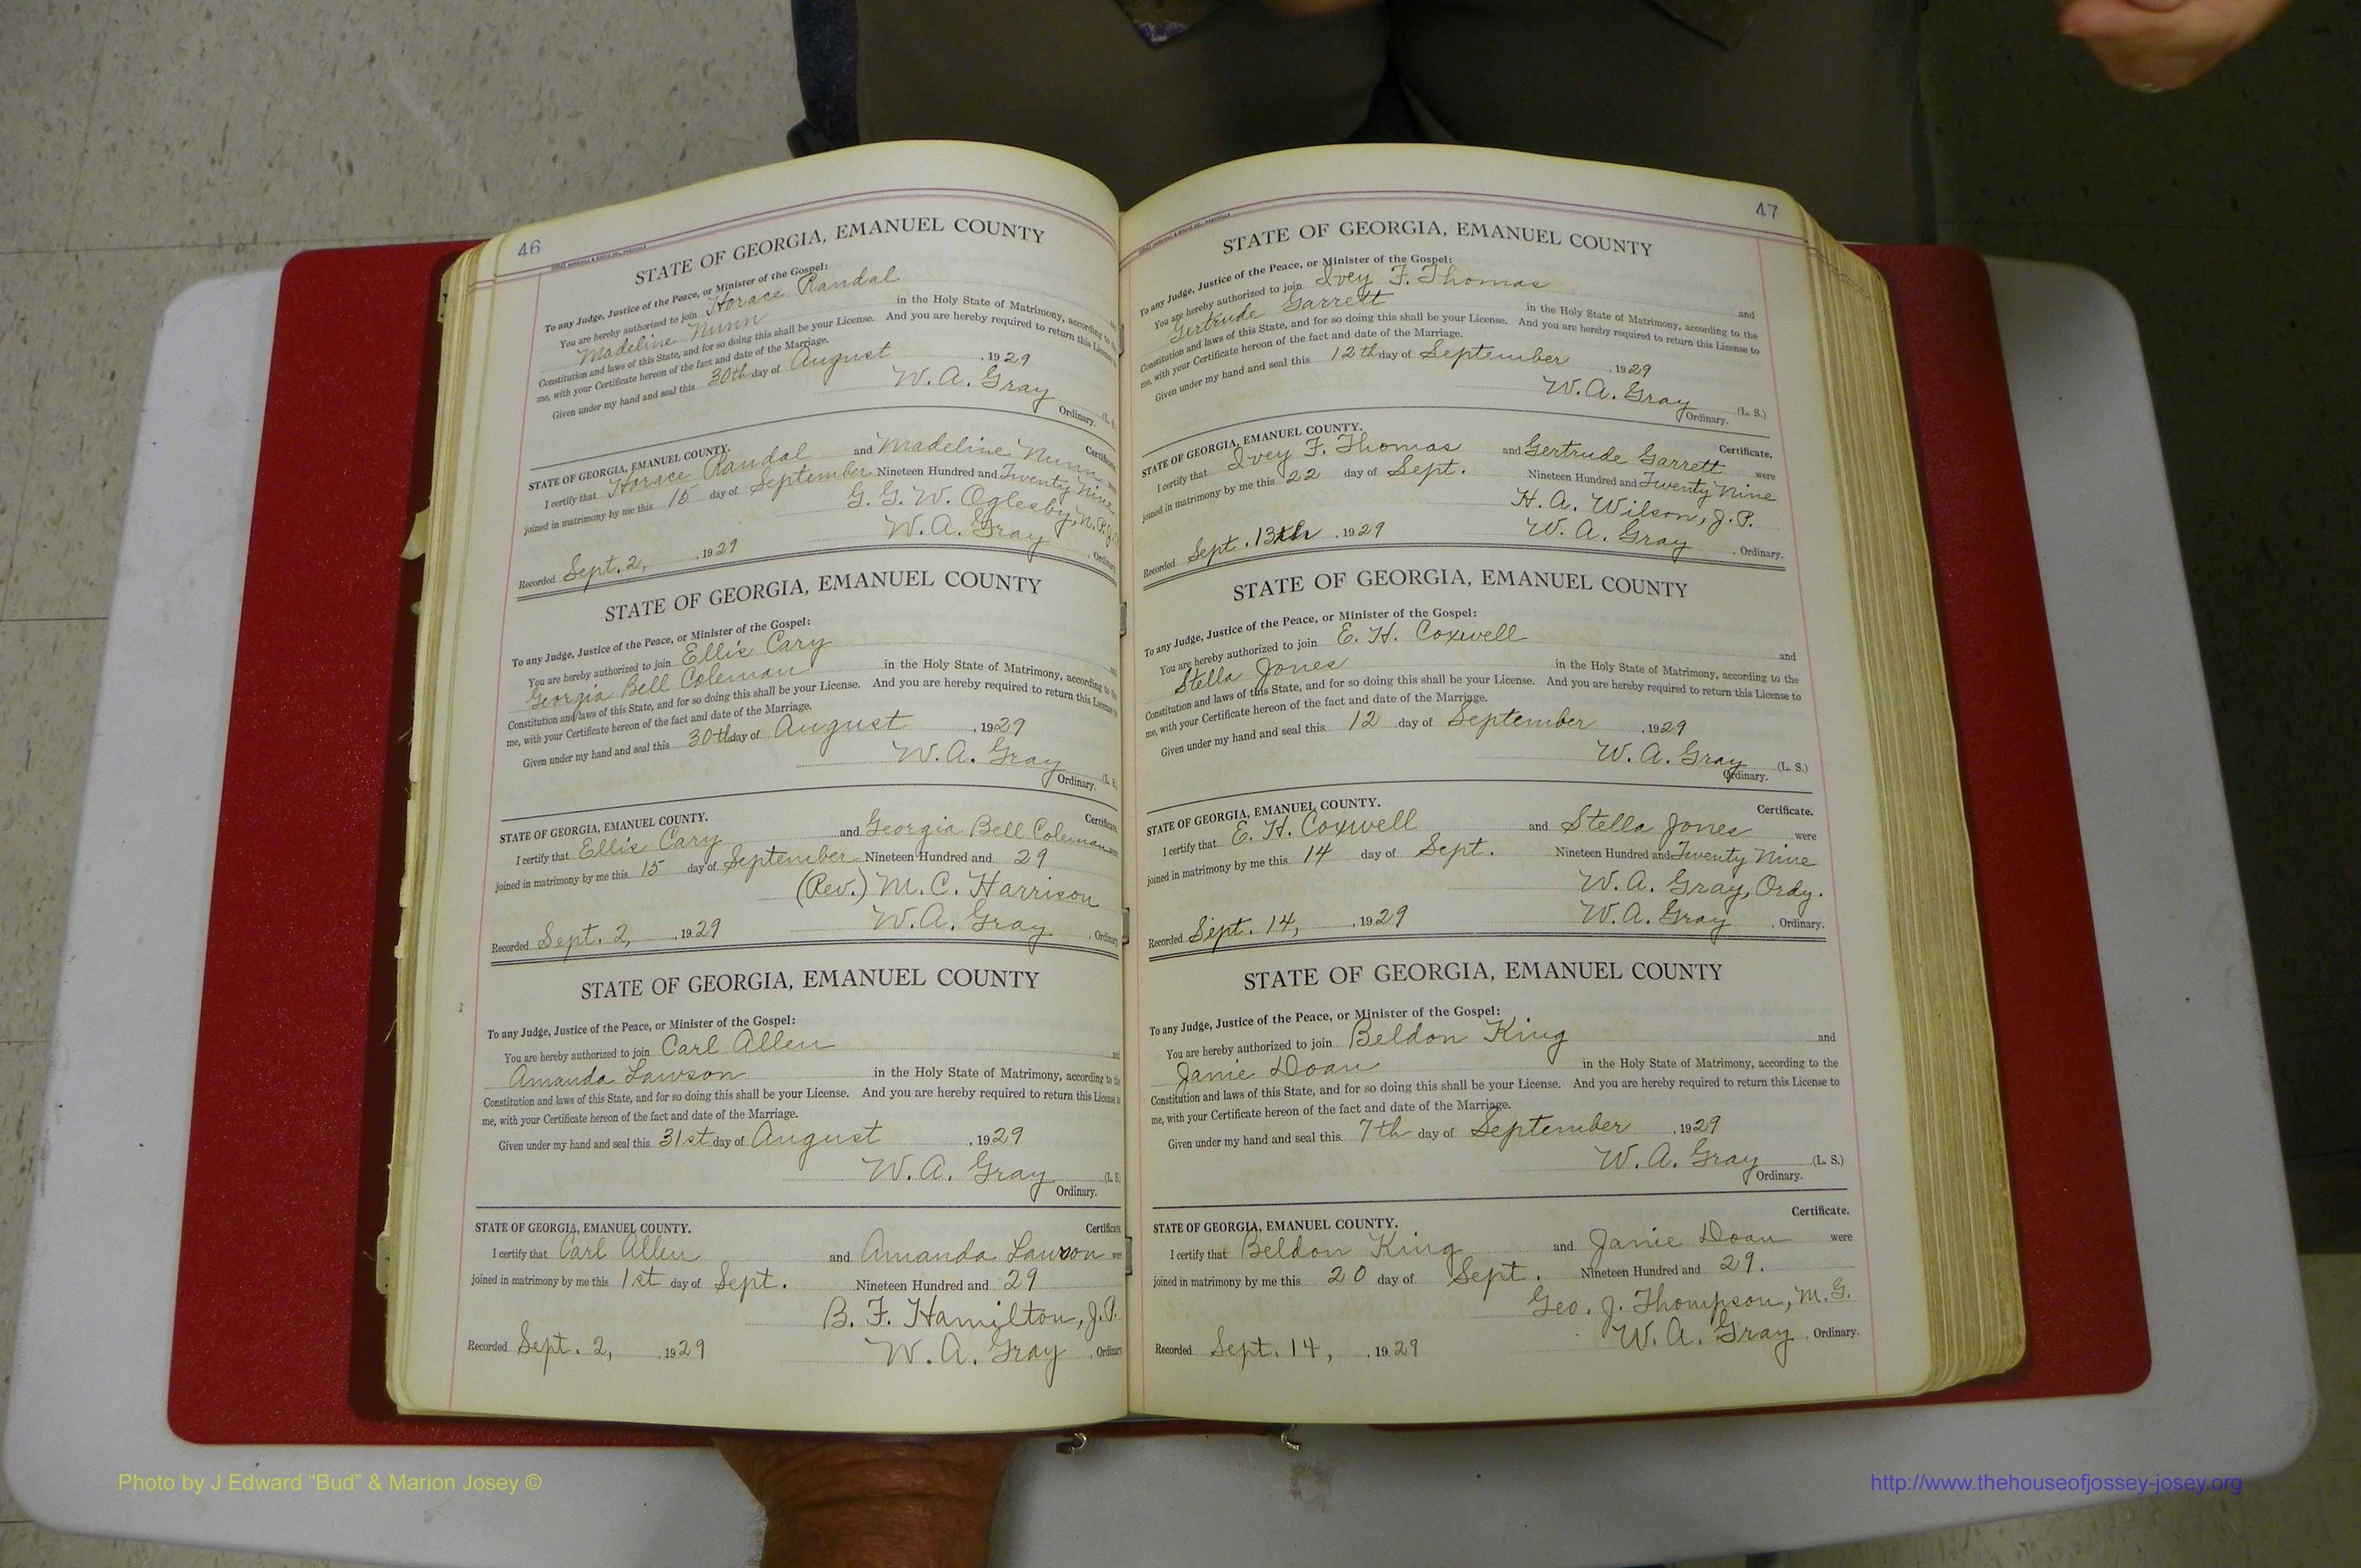 46
STATE OF GEORGIA, EMANUEL COUNTY
To any Judge, Justice of the Peace, or Minister of the Gospel:
You are hereby authorized to join Horace Randal
Madeline Nunn in the Holy State of Matrimony, according to
Constitution and laws of this State, and for so doing this shall be your License. And you are hereby required to return this License
me, with your Certificate hereon of the fact and date of the Marriage.
Given under my hand and seal this 30th day of August , 1929
W. A. Gray (L. S.
Ordinary.
Certificate
STATE OF GEORGIA, EMANUEL COUNTY.
I certify that Horace Randal and Madeline Nunn
joined in matrimony by me this 15 day of September Nineteen Hundred and Twenty Nine
G. G. W. Oglesby, N.P.
Recorded Sept. 2, , 1929 W. A. Gray , Ordinary
STATE OF GEORGIA, EMANUEL COUNTY
To any Judge, Justice of the Peace, or Minister of the Gospel:
You are hereby authorized to join Ellis Cary and
Georgia Bell Coleman in the Holy State of Matrimony, according to the
Constitution and laws of this State, and for so doing this shall be your License. And you are hereby required to return this License
me, with your Certificate hereon of the fact and date of the Marriage.
Given under my hand and seal this 30th day of August , 1929
W. A. Gray (L. S.
Ordinary.
Certificate
STATE OF GEORGIA, EMANUEL COUNTY.
I certify that Ellis Cary and Georgia Bell Coleman
joined in matrimony by me this 15 day of September Nineteen Hundred and 29
(Rev.) M. C. Harrison
Recorded Sept. 2, , 1929 W. A. Gray , Ordinary
STATE OF GEORGIA, EMANUEL COUNTY
To any Judge, Justice of the Peace, or Minister of the Gospel:
You are hereby authorized to join Carl Allen and
Amanda Lawson in the Holy State of Matrimony, according to the
Constitution and laws of this State, and for so doing this shall be your License. And you are hereby required to return this License to
me, with your Certificate hereon of the fact and date of the Marriage.
Given under my hand and seal this 31st day of August , 1929
W. A. Gray (L. S.
Ordinary.
STATE OF GEORGIA, EMANUEL COUNTY. Certificate
I certify that Carl Allen and Amanda Lawson were
joined in matrimony by me this 1st day of Sept. Nineteen Hundred and 29
B. F. Hamilton, J.P.
Recorded Sept. 2, , 1929 W. A. Gray , Ordinary
47
STATE OF GEORGIA, EMANUEL COUNTY
To any Judge, Justice of the Peace, or Minister of the Gospel:
You are hereby authorized to join Ivey F. Thomas and
Gertrude Garrett in the Holy State of Matrimony, according to the
Constitution and laws of this State, and for so doing this shall be your License. And you are hereby required to return this License to
me, with your Certificate hereon of the fact and date of the Marriage.
Given under my hand and seal this 12th day of September , 1929
W. A. Gray (L. S.)
Ordinary.
STATE OF GEORGIA, EMANUEL COUNTY. Certificate.
I certify that Ivey F. Thomas and Gertrude Garrett were
joined in matrimony by me this 22 day of Sept. Nineteen Hundred and Twenty Nine
H. A. Wilson, J. P.
Recorded Sept. 13th , 1929 W. A. Gray , Ordinary.
STATE OF GEORGIA, EMANUEL COUNTY
To any Judge, Justice of the Peace, or Minister of the Gospel:
You are hereby authorized to join E. H. Coxwell and
Stella Jones in the Holy State of Matrimony, according to the
Constitution and laws of this State, and for so doing this shall be your License. And you are hereby required to return this License to
me, with your Certificate hereon of the fact and date of the Marriage.
Given under my hand and seal this 12 day of September , 1929
W. A. Gray (L. S.)
Ordinary.
STATE OF GEORGIA, EMANUEL COUNTY. Certificate.
I certify that E. H. Coxwell and Stella Jones were
joined in matrimony by me this 14 day of Sept. Nineteen Hundred and Twenty Nine
W. A. Gray, Ordy.
Recorded Sept. 14, , 1929 W. A. Gray , Ordinary.
STATE OF GEORGIA, EMANUEL COUNTY
To any Judge, Justice of the Peace, or Minister of the Gospel:
You are hereby authorized to join Beldon King and
Janie Doan in the Holy State of Matrimony, according to the
Constitution and laws of this State, and for so doing this shall be your License. And you are hereby required to return this License to
me, with your Certificate hereon of the fact and date of the Marriage.
Given under my hand and seal this 7th day of September , 1929
W. A. Gray (L. S.)
Ordinary.
Certificate.
STATE OF GEORGIA, EMANUEL COUNTY.
I certify that Beldon King and Janie Doan were
joined in matrimony by me this 20 day of Sept. Nineteen Hundred and 29.
Geo. J. Thompson, M. G.
Recorded Sept. 14, , 1929 W. A. Gray , Ordinary.
Photo by J Edward “Bud” & Marion Josey ©
http://www.thehouseofjossey-josey.org